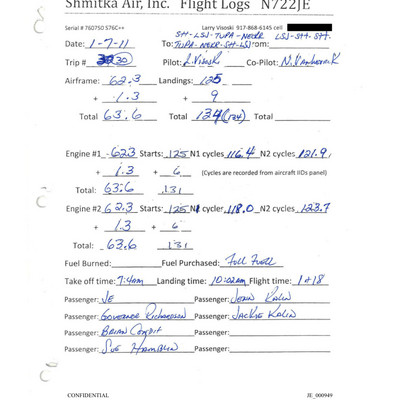 Shmitka Air, Inc. Flight Logs N722JE
Serial # 760750 S76C++ Larry Visoski 917-868-6145 cell
SH-LSJ-TUPA-NECKR LSJ-SH-SH.
Date: 1-7-11 To: TUPA-NECKR-SH-LSJ From:
Trip # 30 Pilot: L. Visoski Co-Pilot:
Airframe: 62.3 Landings: 125
+ 1.3 + 9
Total 63.6 Total 134 (134)
Engine #1 62.3 Starts: 125 N1 cycles 116.4 N2 cycles 121.9
+ 1.3 + 6 (Cycles are recorded from aircraft IIDs panel)
Total: 63.6 131
Engine #2 62.3 Starts: 125 N1 cycles 118.0 N2 cycles 123.7
+ 1.3 + 6
Total: 63.6 131
Fuel Burned: Fuel Purchased: Full Fuel
Take off time: 7:4am Landing time: 10:02am Flight time: 1+18
Passenger: JE Passenger: Jean Kalin
Passenger: Governor Richardson Passenger: Jackie Kalin
Passenger: Brian Condit Passenger:
Passenger: Sue Hamblin Passenger:
CONFIDENTIAL JE_000949